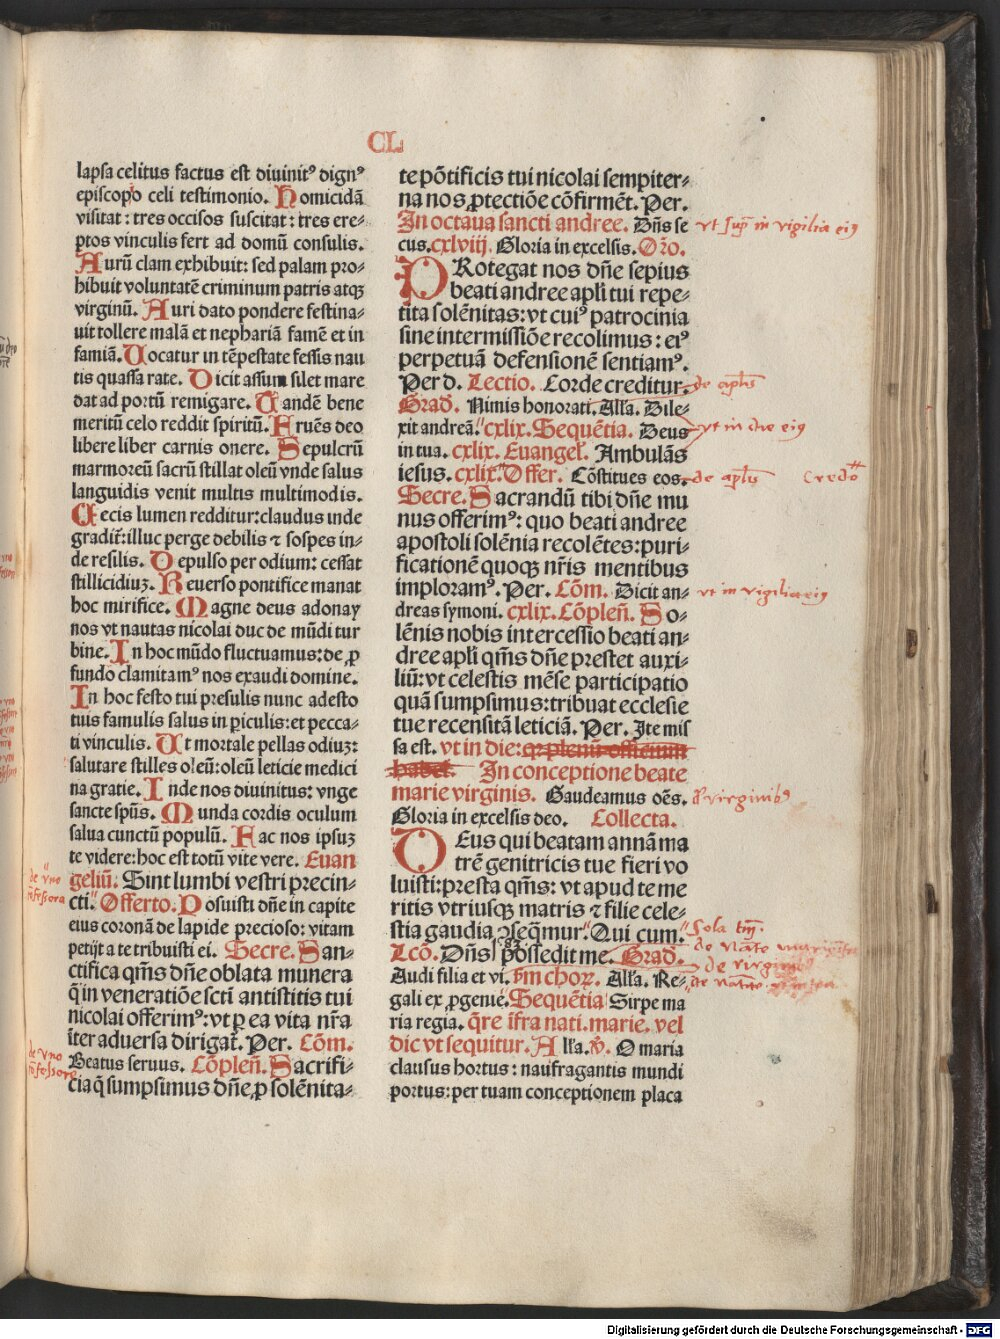 CL
lapsa celitus factus est diuinitꝰ dignꝰ
episcopo celi testimonio. Homicidā
visitat: tres occisos suscitat: tres ere-
ptos vinculis fert ad domū consulis.
Aurū clam exhibuit: sed palam pro-
hibuit voluntatē criminum patris atqꝫ
virginū. Auri dato pondere festina-
uit tollere malā et nephariā famē et in
famiā. Uocatur in tēpestate fessis nau
tis quassa rate. Dicit assum silet mare
dat ad portū remigare. Tandē bene
meritū celo reddit spiritū. Eruēs deo
libere liber carnis onere. Sepulcrū
marmoreū sacrū stillat oleū vnde salus
languidis venit multis multimodis.
Cecis lumen redditur: claudus inde
gradit᷑: illuc perge debilis ⁊ sospes in-
de resilis. Depulso per odium: cessat
stillicidiuꝫ. Reuerso pontifice manat
hoc mirifice. Magne deus adonay
nos vt nautas nicolai duc de mūdi tur
bine. In hoc mūdo fluctuamus: de ꝓ
fundo clamitamꝰ nos exaudi domine.
In hoc festo tui presulis nunc adesto
tuis famulis salus in ꝑiculis: et pecca-
ti vinculis. Ut mortale pellas odiuꝫ:
salutare stilles oleū: oleū leticie medici
na gratie. Inde nos diuinitus: vnge
sancte spūs. Munda cordis oculum
salua cunctū populū. Hac nos ipsuꝫ
te videre: hoc est totū vite vere. Euan
geliū. Sint lumbi vestri precin-
cti. Offerto. Posuisti dn̄e in capite
eius coronā de lapide precioso: vitam
petijt a te tribuisti ei. Secre. San-
ctifica qm̄s dn̄e oblata munera
q̄ in veneratiōe scti antistitis tui
nicolai offerimꝰ: vt ꝑ ea vita nr̄a
īter aduersa dirigat᷑. Per. Cōm.
Beatus seruus. Cōplen̄. Sacrifi-
cia q̄ sumpsimus dn̄e ꝓ solēnita-
de vno
ꝯfessora
de vno
ꝯfessore
te pōtificis tui nicolai sempiter-
na nos ꝓtectiōe cōfirmēt. Per.
In octaua sancti andree. Dn̄s se
cus. cxlviij. Gloria in excelsis. Or̄o.
PRotegat nos dn̄e sepius
beati andree apl̄i tui repe-
tita solēnitas: vt cuiꝰ patrocinia
sine intermissiōe recolimus: eiꝰ
perpetuā defensionē sentiamꝰ.
Per d. Lectio. Corde creditur.
Grad̄. Nimis honorati. All̄a. Dile-
xit andreā. cxlix. Sequētia. Deus
in tua. cxlix. Euangel̄. Ambulās
iesus. cxlix. Offer. Cōstitues eos.
Secre. Sacrandū tibi dn̄e mu
nus offerimꝰ: quo beati andree
apostoli solēnia recolētes: puri-
ficationē quoqꝫ nr̄is mentibus
imploramꝰ. Per. Cōm. Dicit an-
dreas symoni. cxlix. Cōplen̄. So-
lēnis nobis intercessio beati an-
dree apl̄i qm̄s dn̄e prestet auxi-
liū: vt celestis mēse participatio
quā sumpsimus: tribuat ecclesie
tue recensitā leticiā. Per. Ite mis
sa est. vt in die: qr plenū officium
habet. In conceptione beate
marie virginis. Gaudeamus oēs.
Gloria in excelsis deo. Collecta.
DEus qui beatam annā ma
trē genitricis tue fieri vo
luisti: presta qm̄s: vt apud te me
ritis vtriusqꝫ matris ⁊ filie cele-
stia gaudia ꝯseq̄mur. Qui cum.
Lcō. Dn̄s possedit me. Grad̄.
Audi filia et vi. ẜm choꝝ. All̄a. Re-
gali ex ꝓgenie. Sequētia Stirpe ma
ria regia. q̄re īfra nati. marie. vel
dic vt sequitur. All̄a. ꝟ. O maria
clausus hortus: naufragantis mundi
portus: per tuam conceptionem placa
vt sup̄ in vigilia eiꝰ
de apl̄is
vt in die eiꝰ
de apl̄is Credo
vt in vigilia eiꝰ
de virginibꝰ
Sola tm̄
de virginibꝰ
Digitalisierung gefördert durch die Deutsche Forschungsgemeinschaft - DFG